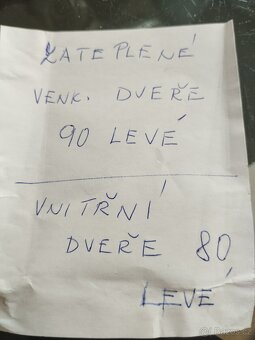 ZATEPLENÉ
VENK. DVEŘE
90 LEVÉ
VNITŘNÍ
DVEŘE 80
LEVÉ